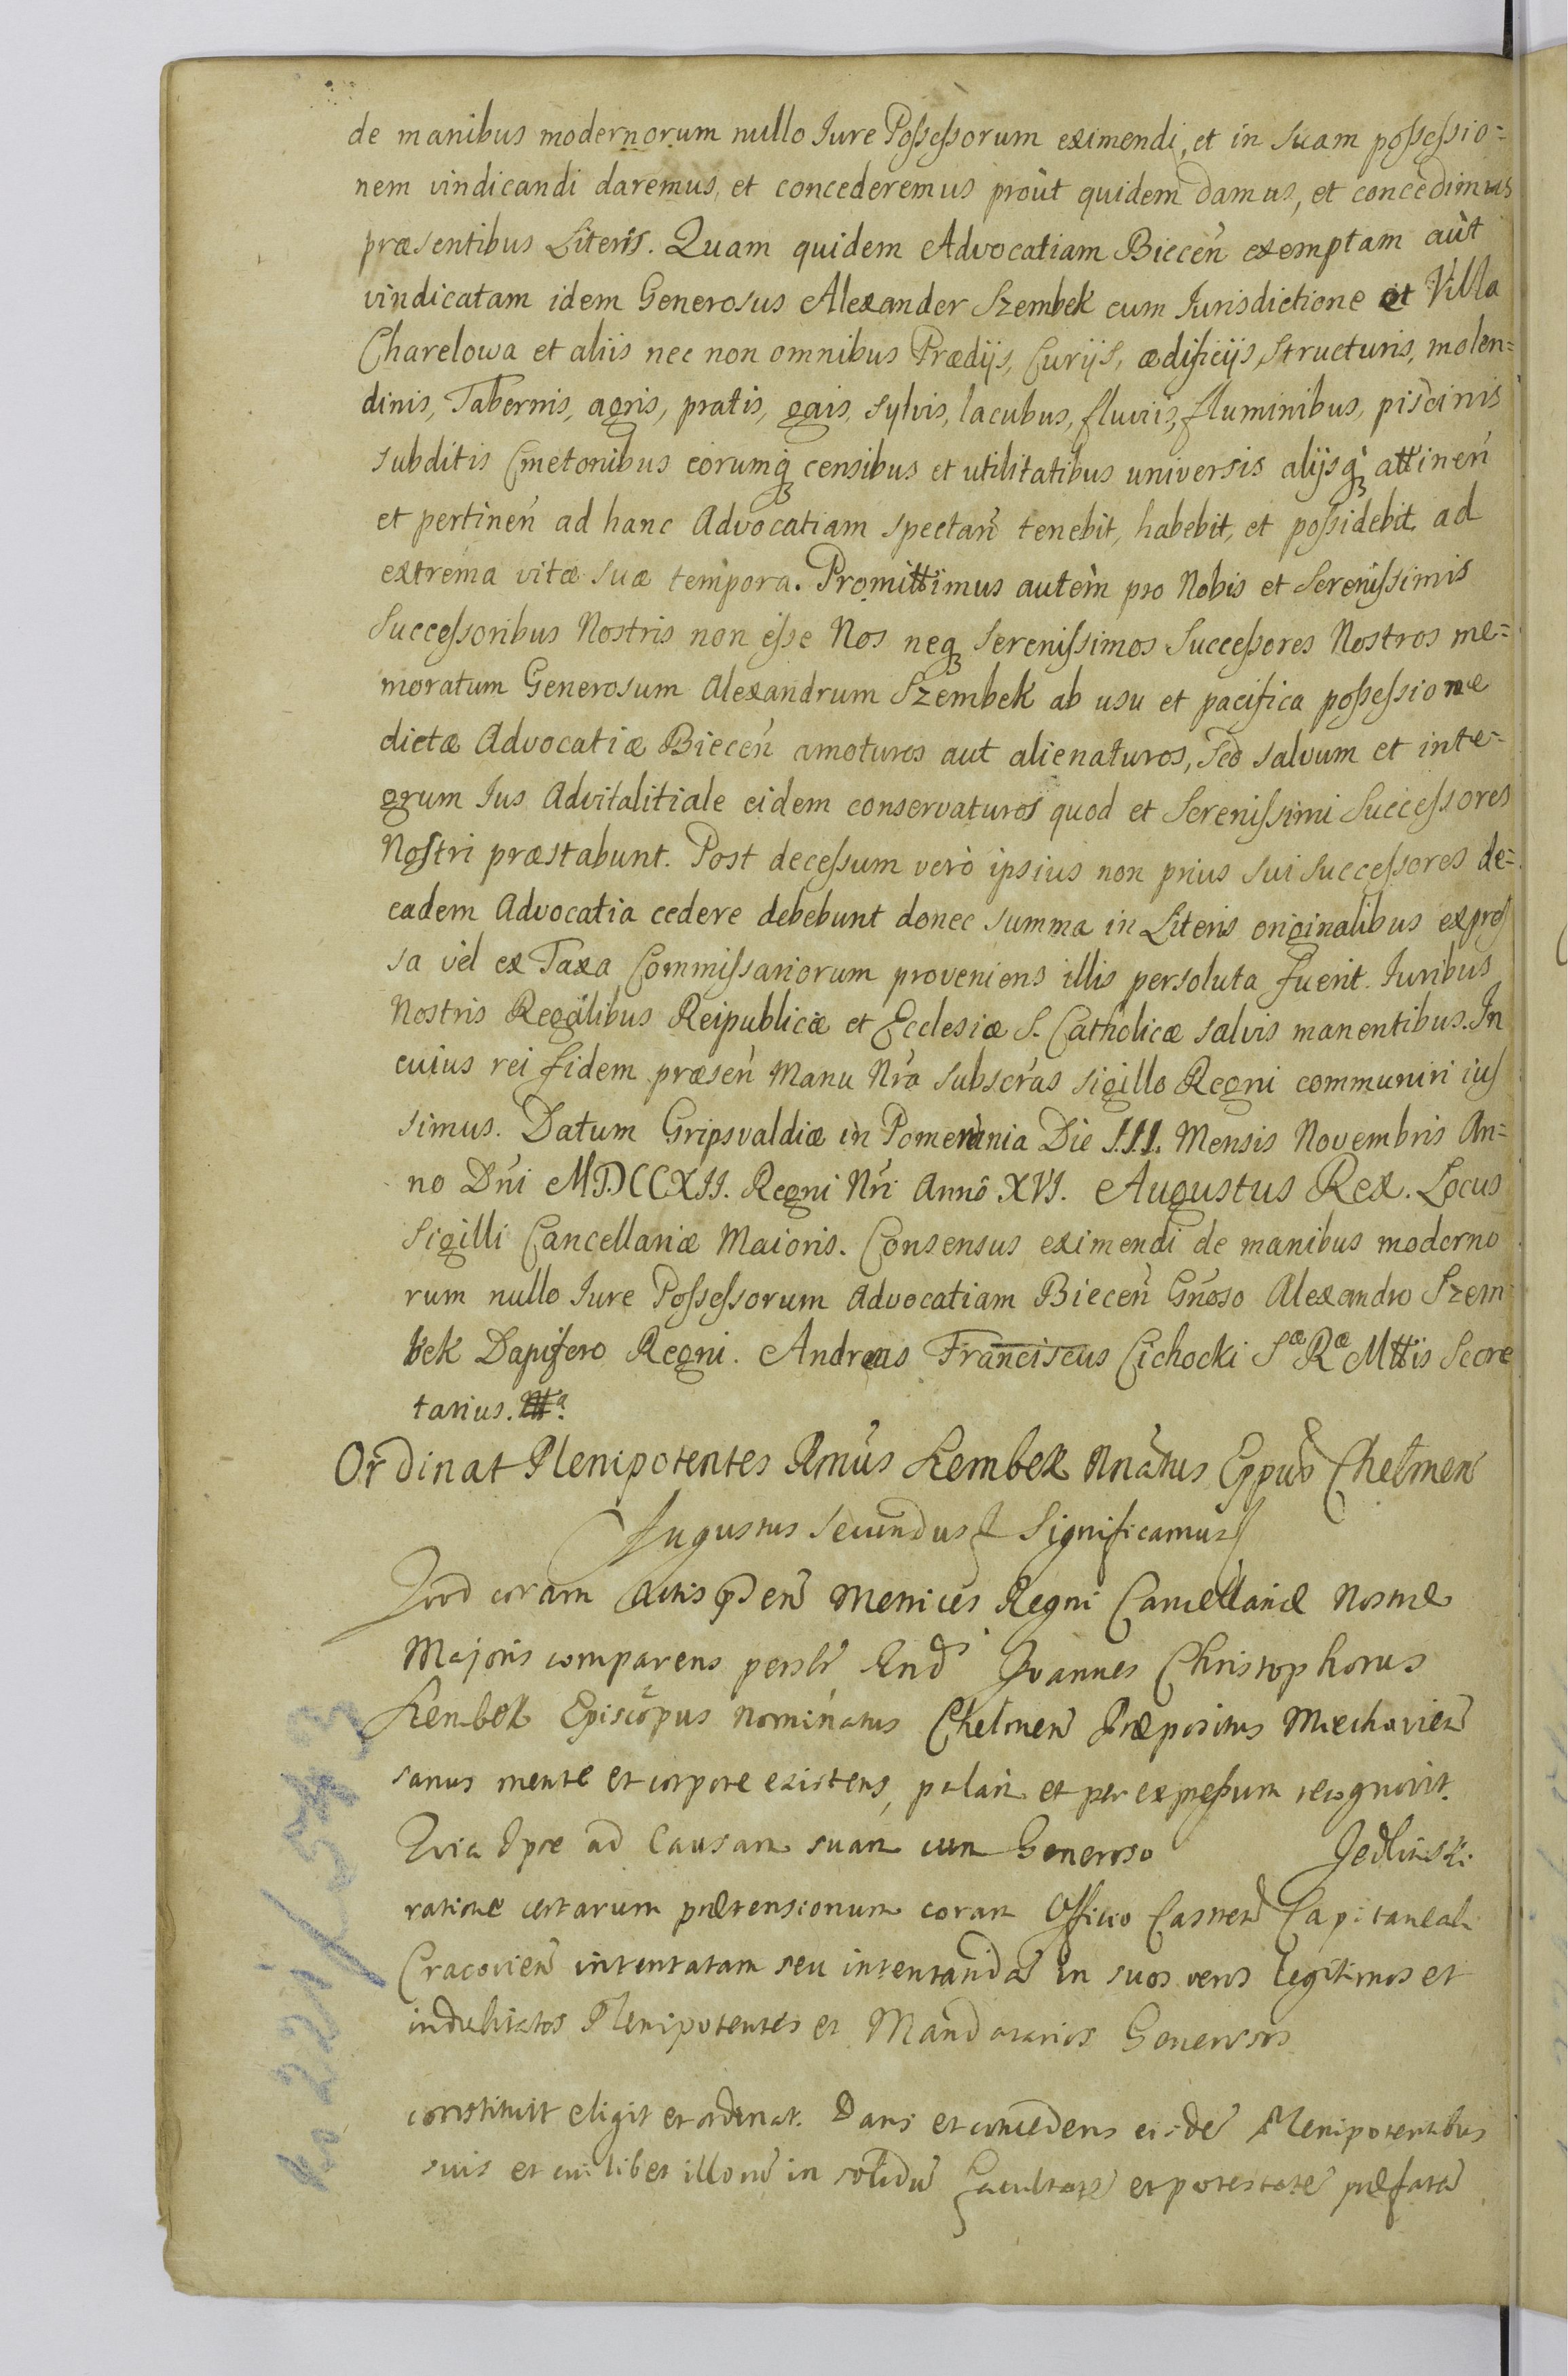 de manibus modernorum nullo Iure Possessorum eximendi, et in suam possessio=
nem vindicandi daremus, et concederemus proùt quidem damus, et concedimus
præsentibus Literis. Quam quidem Advocatiam Biecen̄ exemptam aùt
vindicatam idem Generosus Alexander Szembek cum Iurisdictione et Villa
Charelowa et aliis nec non omnibus Prædijs, Curijs, ædificijs, structuris, molen=
dinis, Tabernis, agris, pratis, gais, sylvis, lacubus, fluviis, fluminibus, piscinis
subditis Cmetonibus eorumq₃ censibus et utilitatibus universis alijsq₃ attinen̄
et pertinen̄ ad hanc Advocatiam spectan̄ tenebit, habebit, et possidebit ad
extrema vitæ suæ tempora. Promittimus autem pro Nobis et Serenissimis
Successoribus Nostris non esse Nos neq₃ Serenissimos Successores Nostros me=
moratum Generosum Alexandrum Szembek ab usu et pacifica possessione
dictæ Advocatiæ Biecen̄ amoturos aut alienaturos, sed salvum et inte=
grum Ius Advitalitiale eidem conservaturos quod et Serenissimi Successores
Nostri præstabunt. Post decessum verò ipsius non prius sui successores de=
eadem Advocatia cedere debebunt donec summa in Literis originalibus expres
sa vel ex Taxa Commissariorum proveniens illis persoluta fuerit. Iuribus
Nostris Regalibus Reipublicæ et Ecclesiæ S. Catholicæ salvis manentibus. In
cuius rei fidem præsen̄ Manu Nr̄a subscr̄as sigillo Regni communiri ius
simus. Datum Gripsvaldiæ in Pomerania Die III. Mensis Novembris An=
no Dn̄i MDCCXII. Regni Nr̄i Annô XVI. Augustus Rex. Locus
Sigilli Cancellariæ Maioris. Consensus eximendi de manibus moderno
rum nullo Iure Possessorum Advocatiam Biecen̄ Gn̄oso Alexandro Szem
bek Dapifero Regni. Andreas Franciscus Cichocki Sæ Ræ Mttis Secre
tarius.
Ordinat Plenipotentes Rmūs Szembek Nnatus Eppus Chelmen̄
Augustus Secundus Significamus
Quod coram Actis p̄den̄ Metrices Regni Cancellariæ Nostræ
Majoris comparens persl̄r Rn̄d̄s Joannes Christophorus
Szembek Episcopus Nominatus Chelmen̄ Præpositus Miechovien̄
sanus mente et corpore existens, palam et per expressum recognovit.
Quia Ipse ad Causam suam cum Generoso Jedlinski
ratione certarum prætensionum coram Officio Castren̄ Capitaneali
Cracovien̄ intentatam seu intentandā in suos veros legitimos et
indubitatos Plenipotentes et Mandatarios Generosos
constituit eligit et ordinat. Dans et concedens eisdē Plenipotentibus
suis et cuilibet illorū in solidū facultatē et potestatē præfatā